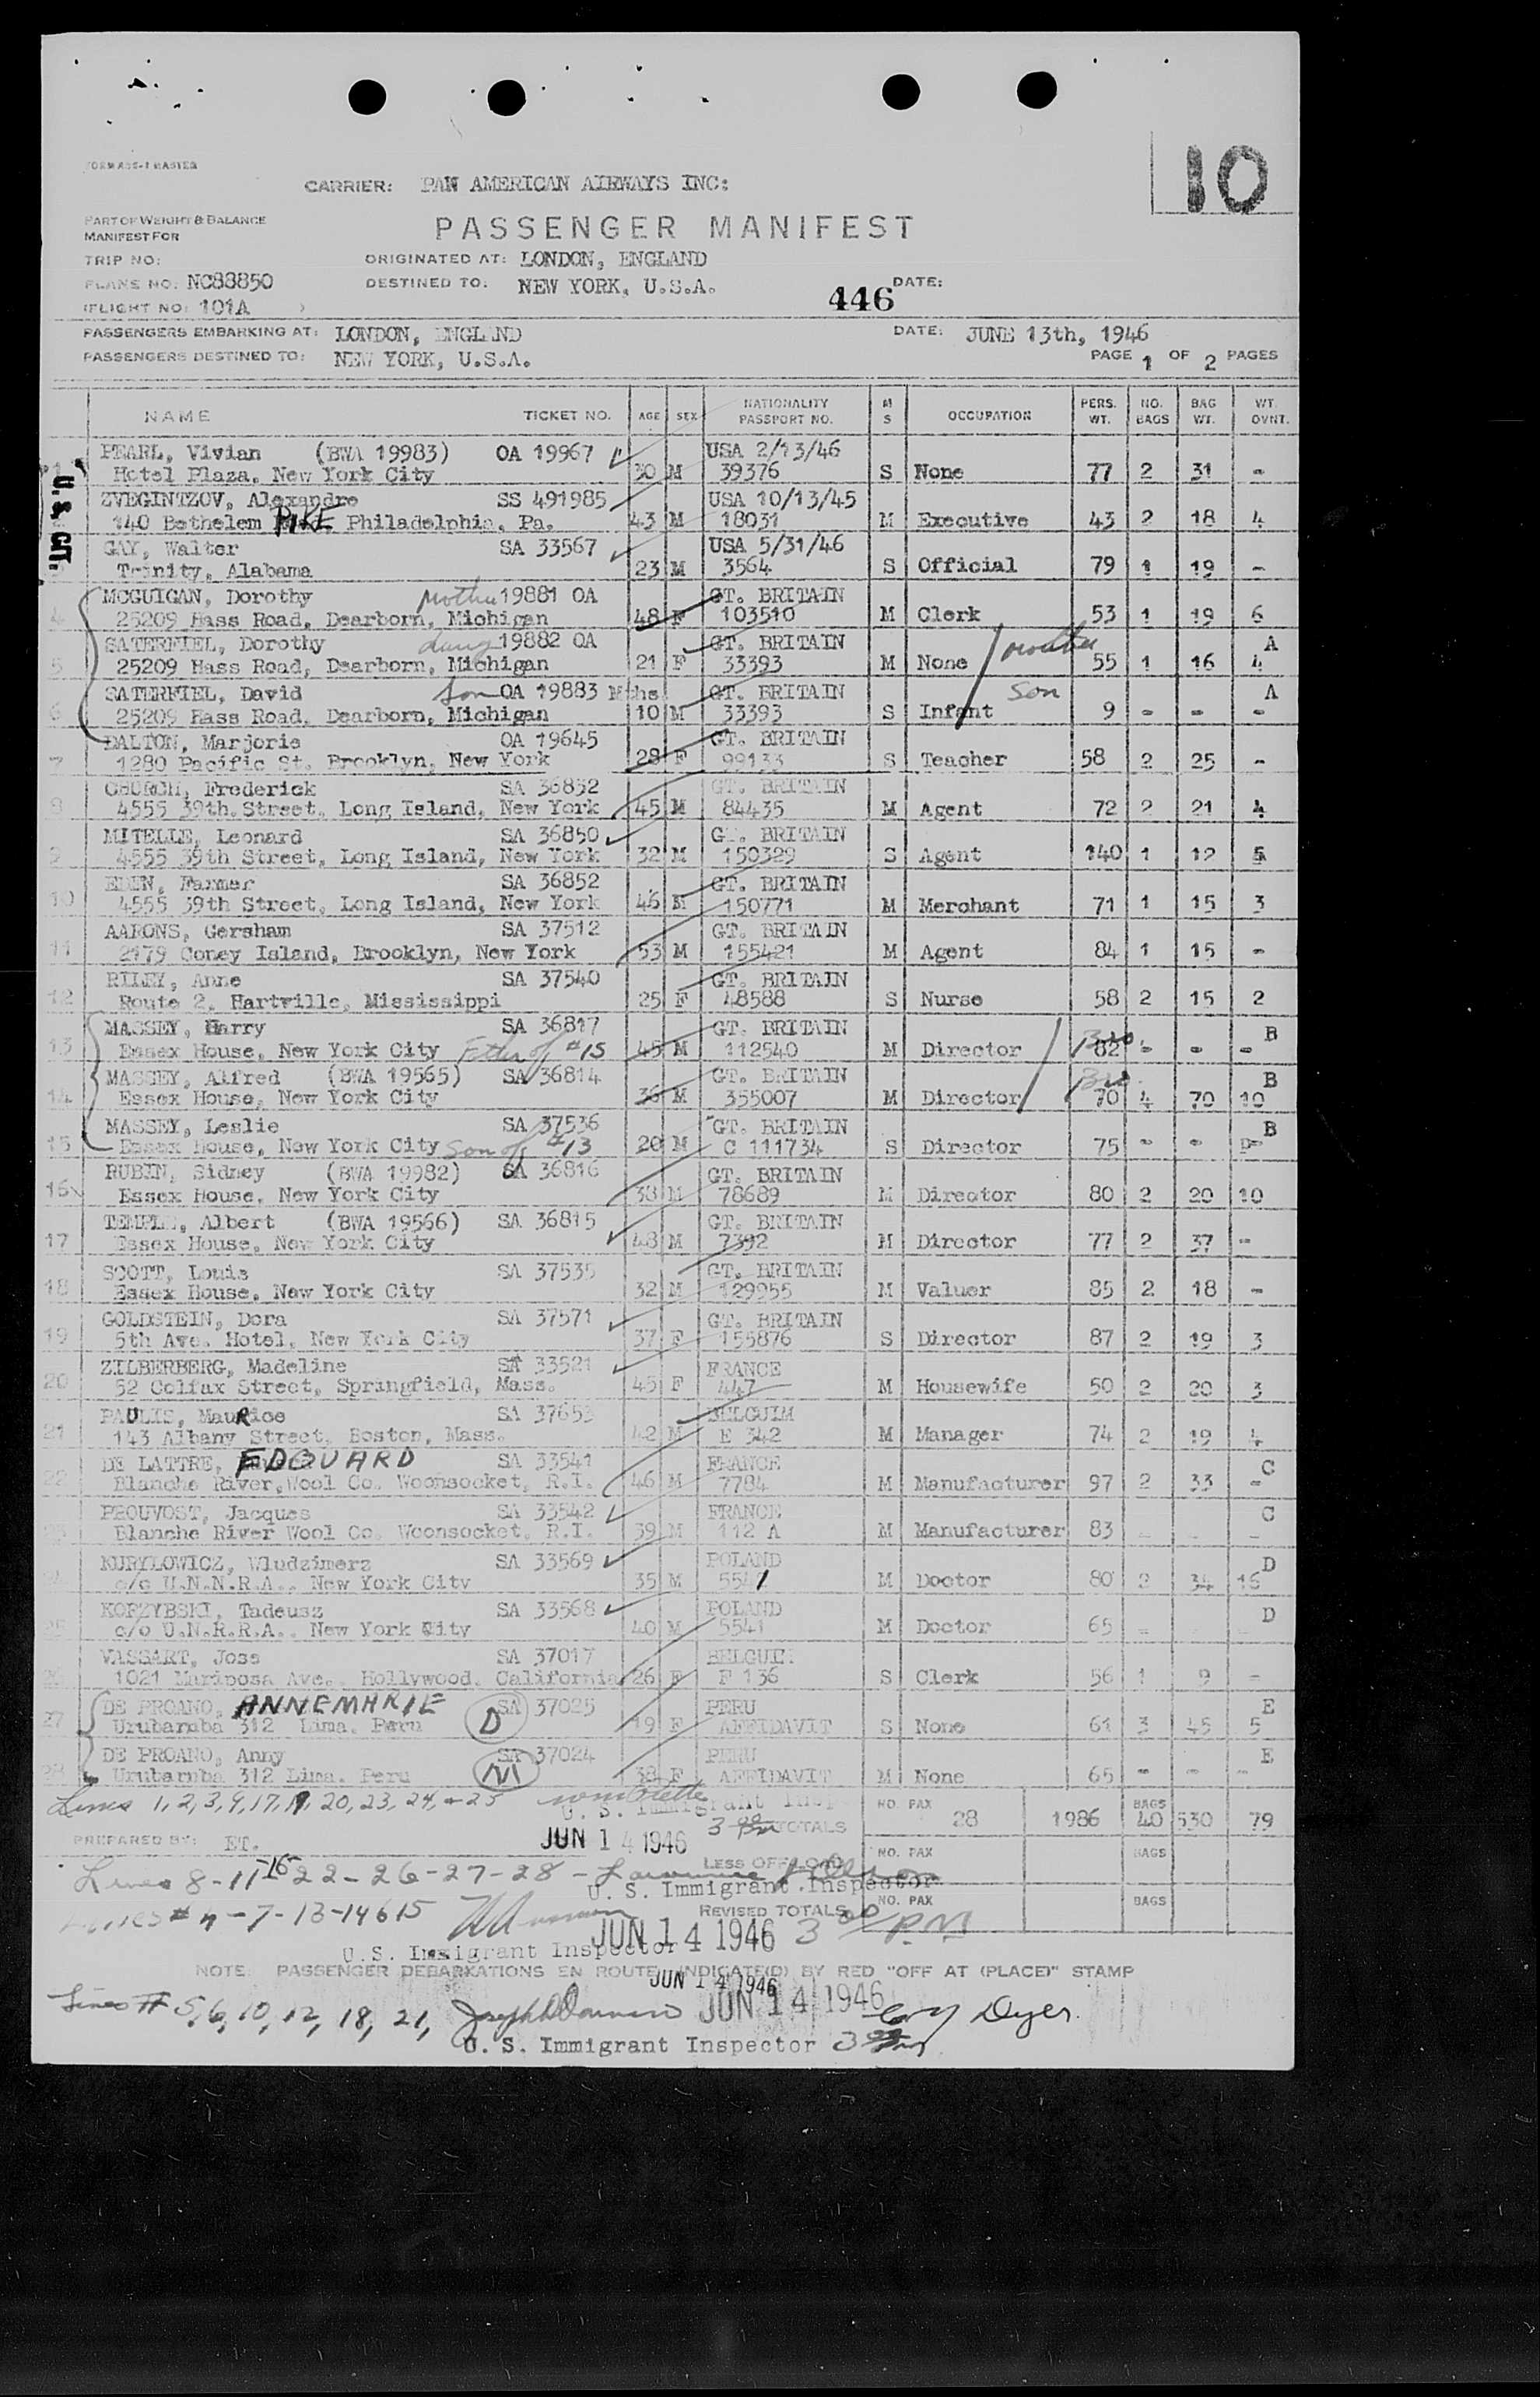 FORM ASS-1 MASTER
10
CARRIER: PAN AMERICAN AIRWAYS INC:
PART OF WEIGHT & BALANCE
MANIFEST FOR
PASSENGER MANIFEST
TRIP NO: ORIGINATED AT: LONDON, ENGLAND
PLANE NO: NC88850 DESTINED TO: NEW YORK, U.S.A. DATE:
(FLIGHT NO: 101A ) 446
PASSENGERS EMBARKING AT: LONDON, ENGLAND DATE: JUNE 13th, 1946
PASSENGERS DESTINED TO: NEW YORK, U.S.A. PAGE 1 OF 2 PAGES
NAME TICKET NO. AGE SEX NATIONALITY PASSPORT NO. M S OCCUPATION PERS. WT. NO. BAGS BAG WT. WT. OVNT.
U.S. CIT.
PEARL, Vivian (BWA 19983) OA 19967 USA 2/13/46
1 Hotel Plaza, New York City 30 M 39376 S None 77 2 31 -
ZVEGINTZOV, Alexandre SS 491985 USA 10/13/45
140 Bethelem PIKE Philadelphia, Pa. 43 M 18031 M Executive 43 2 18 4
GAY, Walter SA 33567 USA 5/31/46
Trinity, Alabama 23 M 3564 S Official 79 1 19 -
MCGUIGAN, Dorothy Mother 19881 OA GT. BRITAIN
4 25209 Hass Road, Dearborn, Michigan 48 F 103510 M Clerk 53 1 19 6
SATERFIEL, Dorothy daug 19882 OA GT. BRITAIN mother A
5 25209 Hass Road, Dearborn, Michigan 21 F 33393 M None 55 1 16 4
SATERFIEL, David Son OA 19883 Mths GT. BRITAIN Son A
6 25209 Hass Road, Dearborn, Michigan 10 M 33393 S Infant 9 - - -
DALTON, Marjorie OA 19645 GT. BRITAIN
7 1280 Pacific St. Brooklyn, New York 28 F 99133 S Teacher 58 2 25 -
CHURCH, Frederick SA 36852 GT. BRITAIN
8 4555 39th. Street, Long Island, New York 45 M 84435 M Agent 72 2 21 4
MITELLE, Leonard SA 36850 GT. BRITAIN
9 4555 39th Street, Long Island, New York 32 M 150329 S Agent 140 1 12 5
EDEN, Farmer SA 36852 GT. BRITAIN
10 4555 39th Street, Long Island, New York 46 M 150771 M Merchant 71 1 15 3
AARONS, Gersham SA 37512 GT. BRITAIN
11 2179 Coney Island, Brooklyn, New York 53 M 155421 M Agent 84 1 15 -
RILEY, Anne SA 37540 GT. BRITAIN
12 Route 2, Hartville, Mississippi 25 F 48588 S Nurse 58 2 15 2
MASSEY, Harry SA 36817 GT. BRITAIN Bro B
13 Essex House, New York City Father of #15 45 M 112540 M Director 82 - - -
MASSEY, Alfred (BWA 19565) SA 36814 GT. BRITAIN Bro. B
14 Essex House, New York City 36 M 355007 M Director 70 4 70 10
MASSEY, Leslie SA 37536 GT. BRITAIN B
15 Essex House, New York City Son of #13 20 M C 111734 S Director 75 - - -
RUBIN, Sidney (BWA 19982) SA 36816 GT. BRITAIN
16 Essex House, New York City 38 M 78689 M Director 80 2 20 10
TEMPLE, Albert (BWA 19566) SA 36815 GT. BRITAIN
17 Essex House, New York City 48 M 7392 M Director 77 2 37 -
SCOTT, Louis SA 37535 GT. BRITAIN
18 Essex House, New York City 32 M 129955 M Valuer 85 2 18 -
GOLDSTEIN, Dora SA 37571 GT. BRITAIN
19 5th Ave. Hotel, New York City 37 F 155876 S Director 87 2 19 3
ZILBERBERG, Madeline SA 33521 FRANCE
20 52 Colfax Street, Springfield, Mass. 45 F 447 M Housewife 50 2 20 3
PAULIS, MauRice SA 37653 BELGUIM
21 143 Albany Street, Boston, Mass. 42 M E 342 M Manager 74 2 19 4
DE LATTRE, EDOUARD SA 33541 FRANCE C
22 Blanche River, Wool Co. Woonsocket, R.I. 46 M 7784 M Manufacturer 97 2 33 -
PROUVOST, Jacques SA 33542 FRANCE C
23 Blanche River Wool Co. Woonsocket, R.I. 39 M 112 A M Manufacturer 83 - - -
KURYLOWICZ, Wludzimerz SA 33569 POLAND D
c/o U.N.N.R.A., New York City 35 M 5541 M Doctor 80 2 34 16
KORZYBSKI, Tadeusz SA 33568 POLAND D
c/o U.N.R.R.A., New York City 40 M 5541 M Doctor 65 - - -
VASSART, Joss SA 37017 BELGUIM
26 1021 Mariposa Ave., Hollywood, California 26 F F 136 S Clerk 56 1 9 -
DE PROANO, ANNEMARIE D SA 37025 PERU E
27 Urubamba 312 Lima. Peru 19 F AFFIDAVIT S None 61 3 45 5
DE PROANO, Anny M SA 37024 PERU E
28 Urubamba 312 Lima. Peru 38 F AFFIDAVIT M None 65 - - -
Lines 1, 2, 3, 9, 17, 19, 20, 23, 24, & 25
U. S. Immigrant Insp
TOTALS NO. PAX 28 1986 BAGS 40 530 79
PREPARED BY: ET. JUN 14 1946
Lines 8-11-16-22-26-27-28
LESS OFFLOAD NO. PAX BAGS
U. S. Immigrant Inspector
Lines # 4-7-13-14 & 15
REVISED TOTALS NO. PAX BAGS
JUN 14 1946 3 00 P.M
U.S. Immigrant Inspector
NOTE: PASSENGER DEBARKATIONS EN ROUTE INDICATE(D) BY RED "OFF AT (PLACE)" STAMP
JUN 14 1946
JUN 14 1946
Lines # 5, 6, 10, 12, 18, 21, Dyer.
U. S. Immigrant Inspector